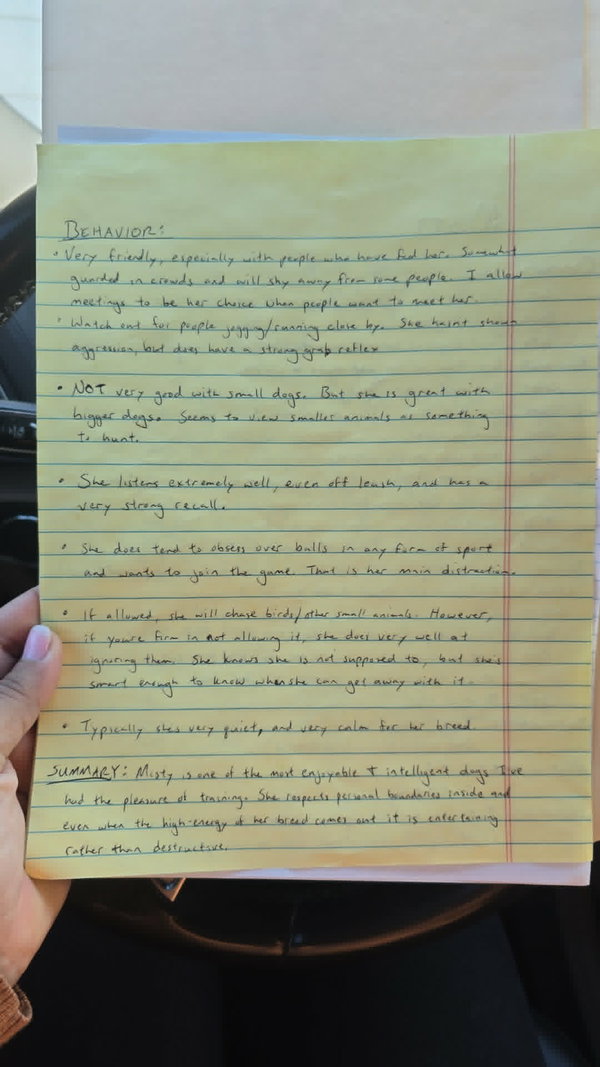 BEHAVIOR:
• Very friendly, especially with people who have fed her. Somewhat
guarded in crowds and will shy away from some people. I allow
meetings to be her choice when people want to meet her.
• Watch out for people jogging/running close by. She hasn't shown
aggression, but does have a strong grab reflex
• NOT very good with small dogs. But she is great with
bigger dogs. Seems to view smaller animals as something
to hunt.
• She listens extremely well, even off leash, and has a
very strong recall.
• She does tend to obsess over balls in any form of sport
and wants to join the game. That is her main distraction.
• If allowed, she will chase birds/other small animals. However,
if you're firm in not allowing it, she does very well at
ignoring them. She knows she is not supposed to, but she's
smart enough to know when she can get away with it.
• Typically she's very quiet, and very calm for her breed.
SUMMARY: Misty is one of the most enjoyable + intelligent dogs I've
had the pleasure of training. She respects personal boundaries inside and
even when the high-energy of her breed comes out it is entertaining
rather than destructive.